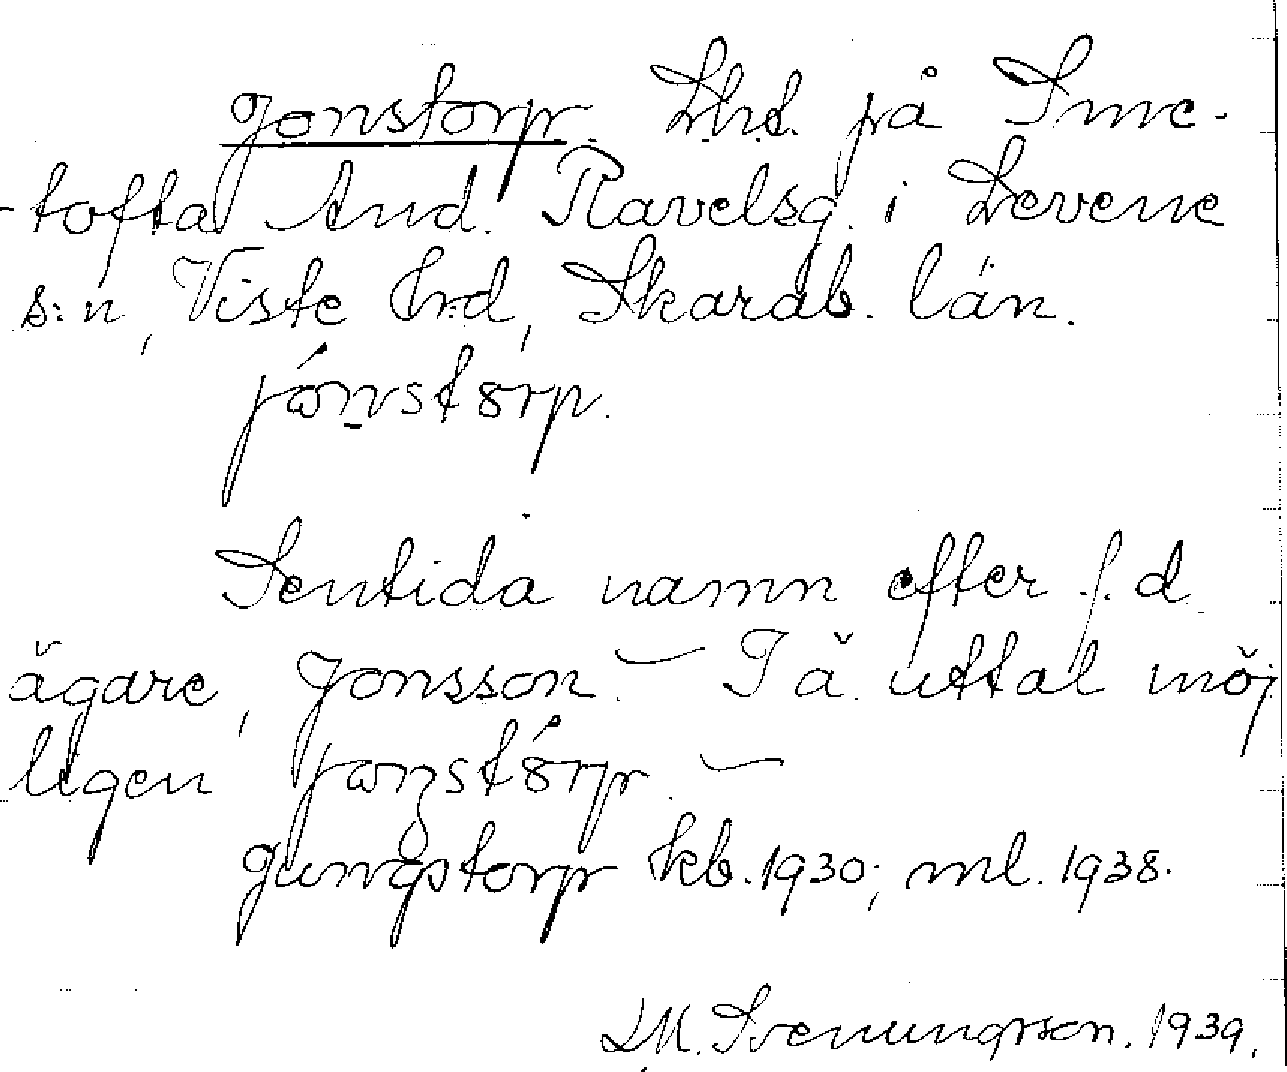 Jonstorp. Lht. på Sme-
tofta And. Ravelsg. i Levene
s:n, Viste hrd, Skarab. län.
jónstorp.
Sentida namn efter f. d.
ägare, Jonsson. — I ä. uttal möj
ligen jonstórp. —
Jungstorp kb. 1930; ml. 1938.
LM. Svenungsson. 1939.